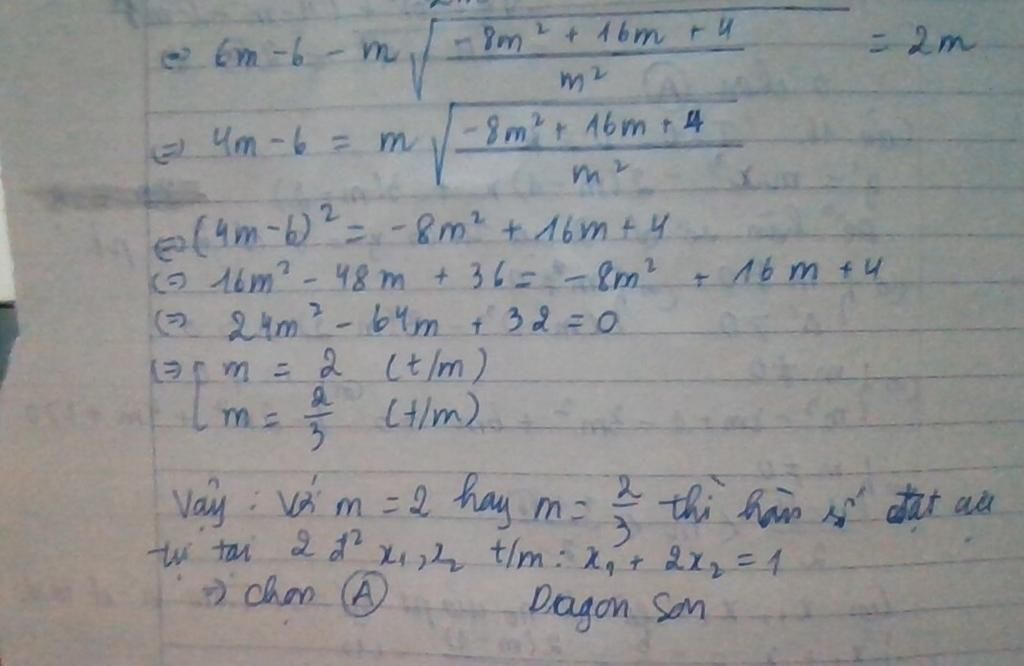 ⇔ 6m - 6 - m√((-8m² + 16m + 4)/m²) = 2m
⇔ 4m - 6 = m√((-8m² + 16m + 4)/m²)
⇔ (4m - 6)² = -8m² + 16m + 4
⇔ 16m² - 48m + 36 = -8m² + 16m + 4
⇔ 24m² - 64m + 32 = 0
⇔ [ m = 2 (t/m)
m = 2/3 (t/m)
Vậy : Với m = 2 hay m = 2/3 thì hàm số đạt cực
trị tại 2 đ² x₁, x₂ t/m : x₁ + 2x₂ = 1
⇒ chọn Ⓐ Dragon Son